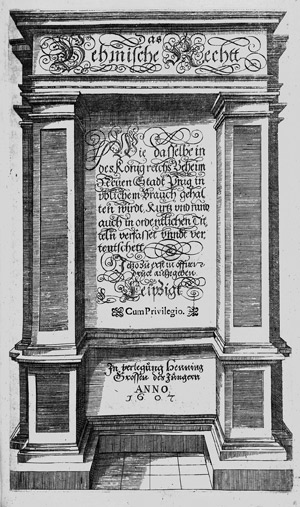 Das
Behmische Rechtt
Wie dasselbe in
des Königreichs Beheim
Neuen Stadt Prag in
üblichem Brauch gehal
ten wirdt. Kurtz und
auch in ordentlichen Tit
teln verfasset unndt ver
teutschett
Jetzo zu erst in offnen
druck ausgegeben
Leipzigk
Cum Privilegio.
In verlegung Henning
Grossen des Jüngern
ANNO
1607